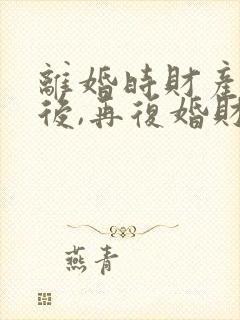 離婚時財產
後,再復婚財
燕青